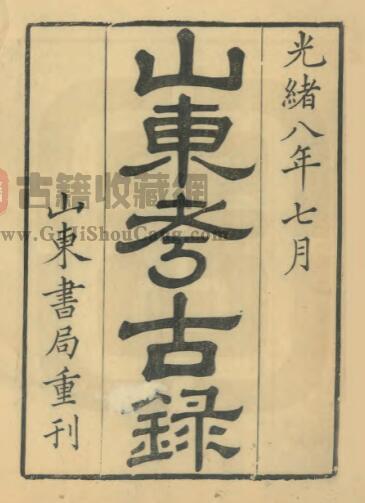 光緒八年七月
山東考古錄
山東書局重刊
古籍收藏網
www.GuJiShouCang.com